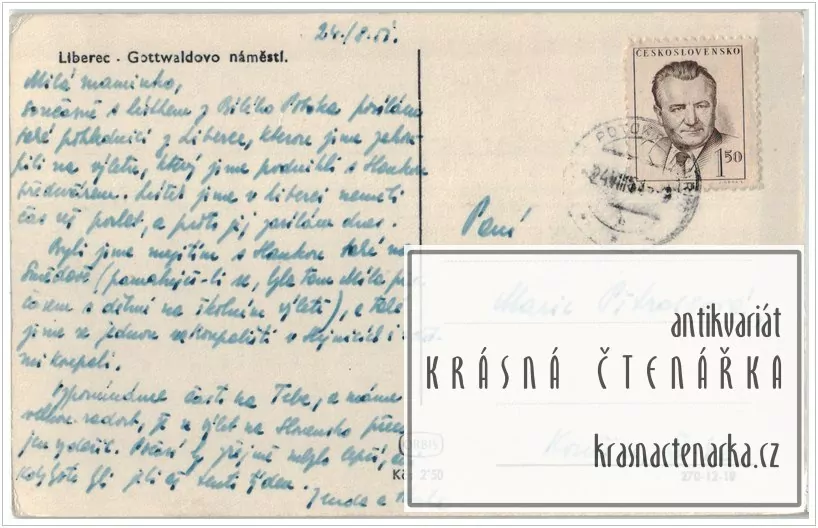 24./8.51.
Liberec - Gottwaldovo náměstí.
Milá maminko,
současně s lístkem z Bílého Potoka posílám
také pohlednici z Liberce, kterou jsme zakou-
pili na výletu, který jsme podnikli s Hankou
předevčírem. Lístek jsme v Liberci neměli
čas už poslat, a proto jej posílám dnes.
Byli jsme mezitím s Hankou také na
Smědavě (pamatuješ-li se, byla tam Míla
s dětmi na školním výletě), a také
jsme se jednou na koupališti v Hejnicích
koupali.
Vzpomínáme často na Tebe, a máme
velkou radost, že výlet na Slovensko
jen vydařil. Počasí by
kdyby tento týden.
Jenda a
ČESKOSLOVENSKO
1.50
POTOK
24.VIII.51
Paní
Marie
ORBIS
Kčs 2.50
270-12-18
antikvariát
KRÁSNÁ ČTENÁŘKA
krasnactenarka.cz